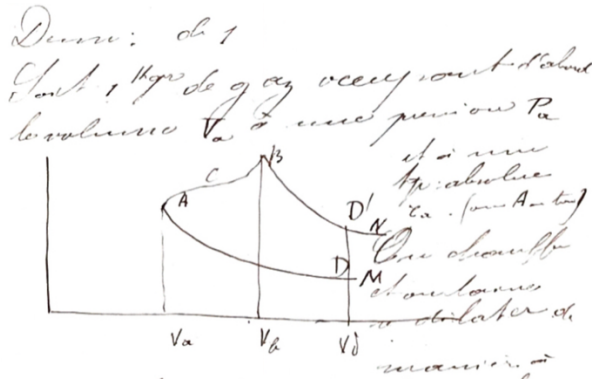 Dem: de 1
Soit 1 kgr de gaz occupant d'abord
le volume Va à une pression Pa
et à une
tp: absolue
τa. (en A
On chauffe
et on laisse
dilater de
manière à
A C B D' N D M
Va Vb Vd